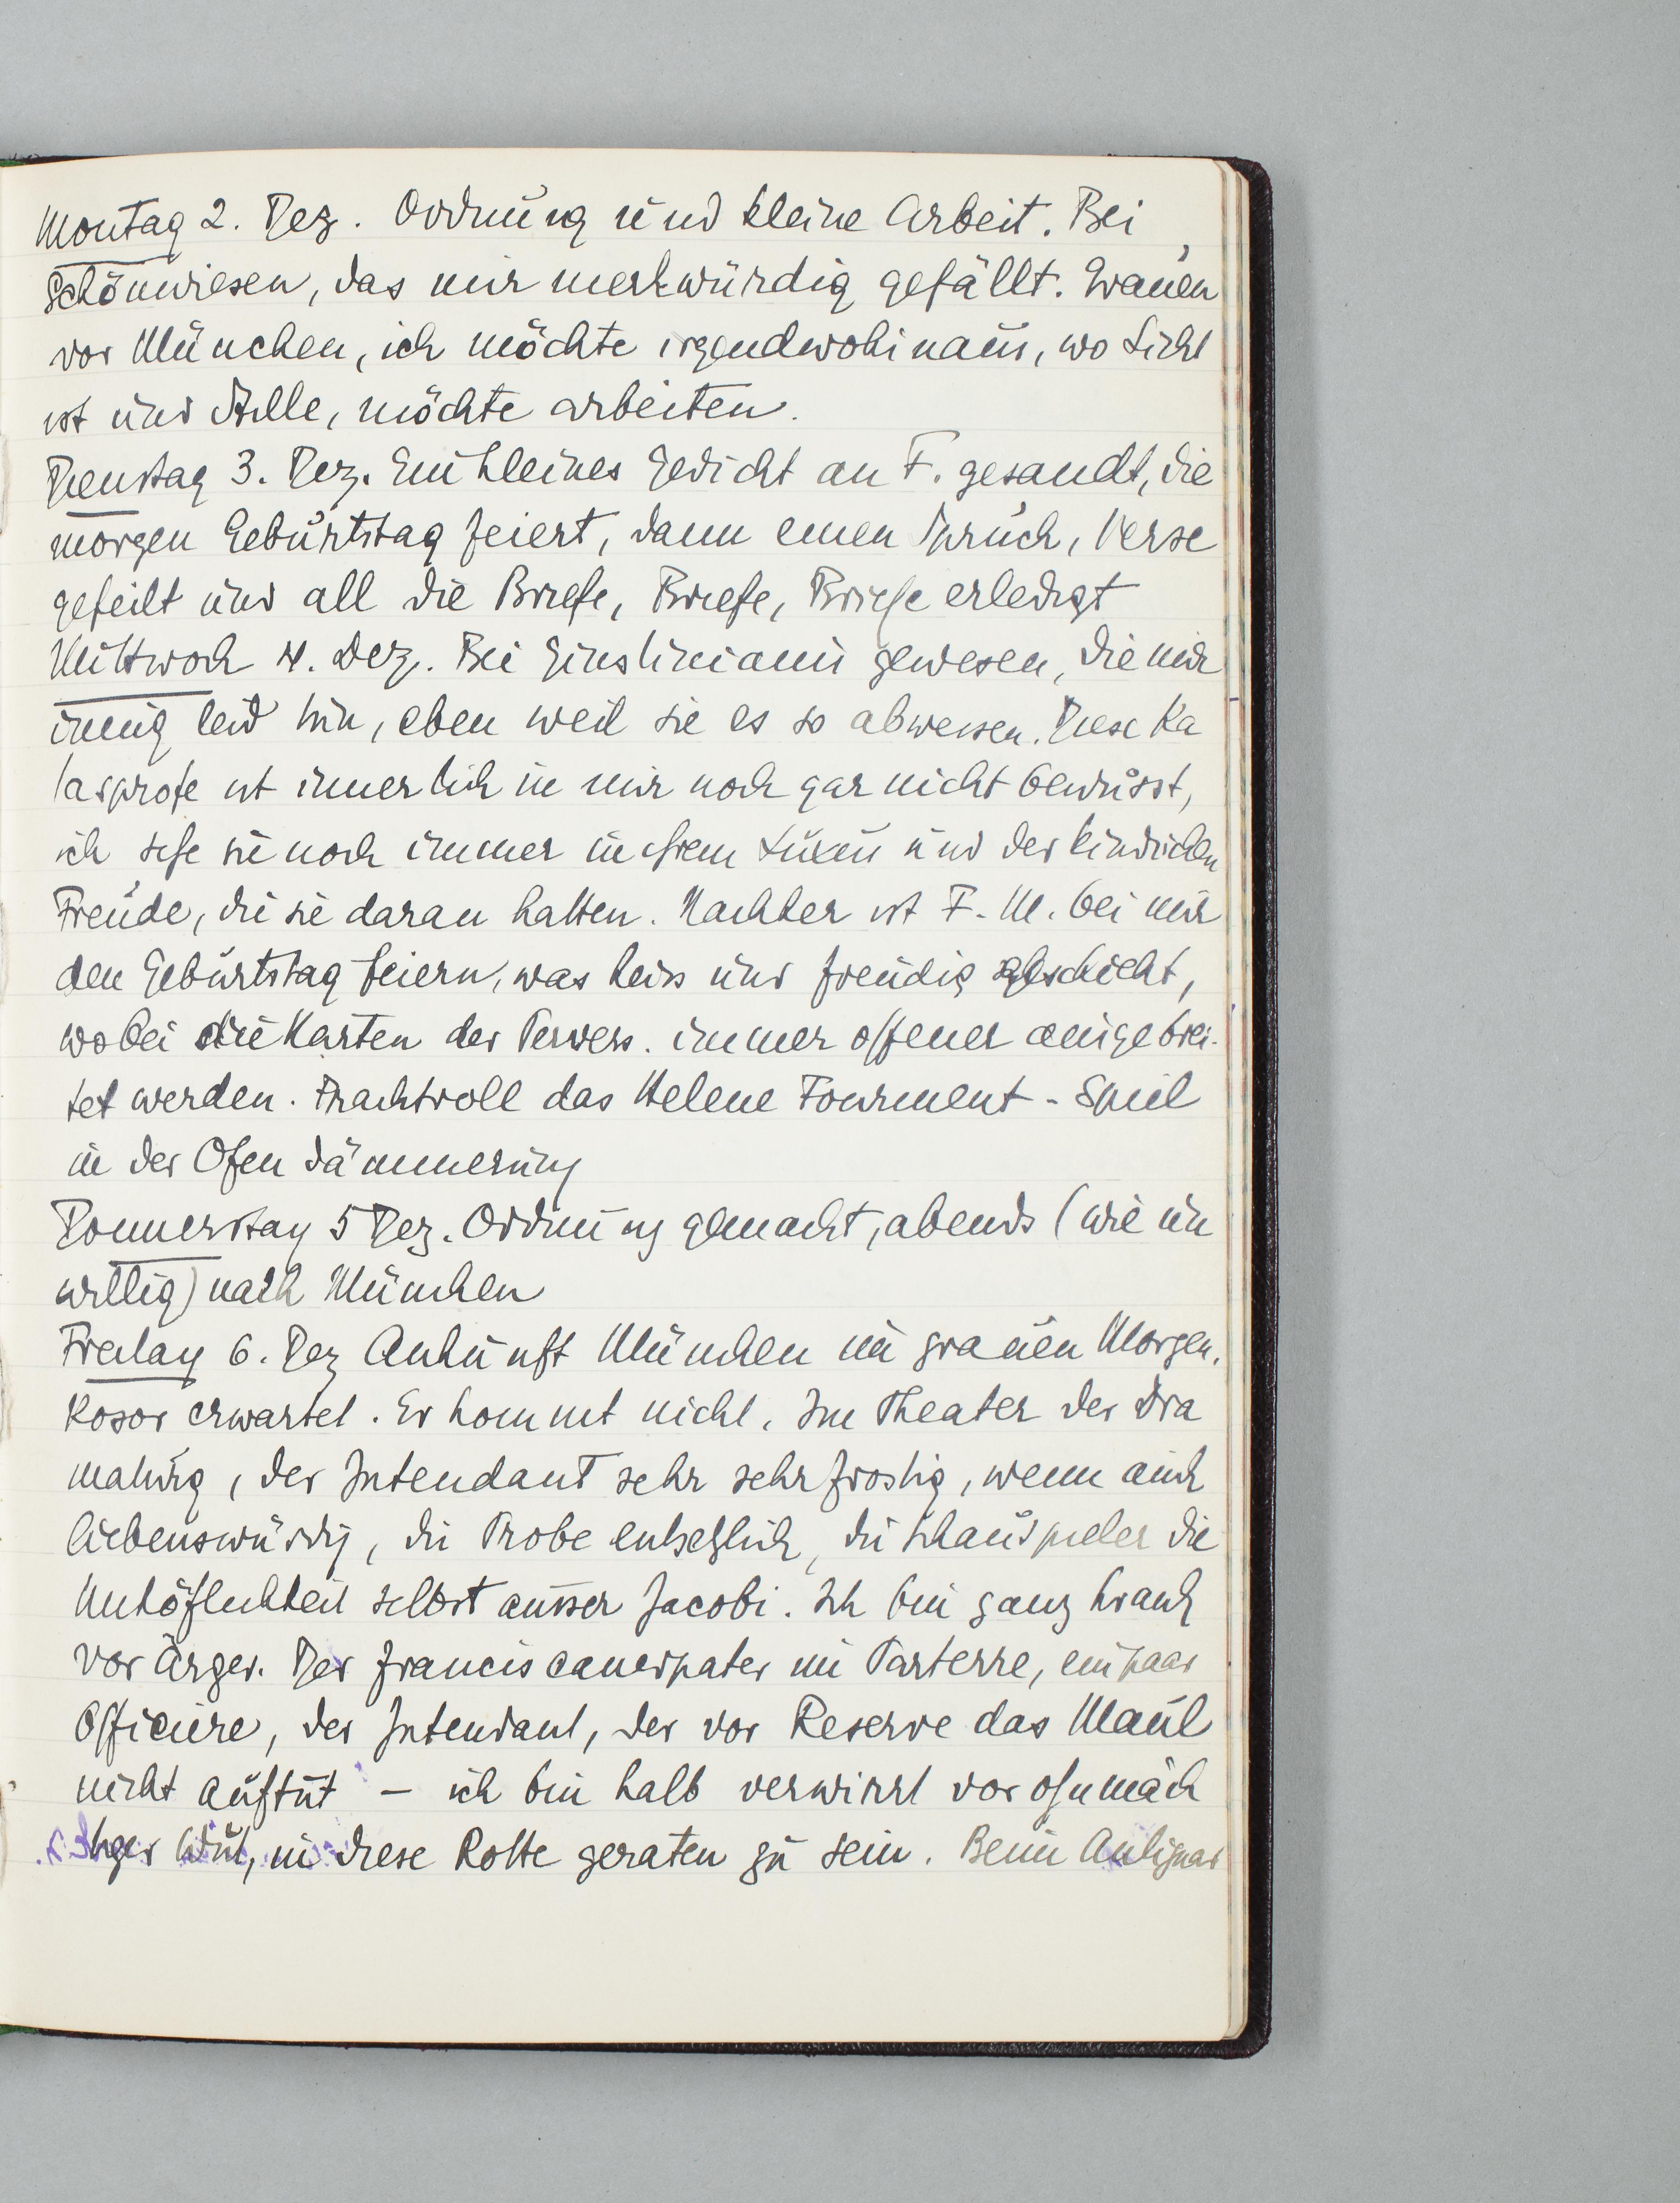 Montag 2. Dez. Ordnung und kleine Arbeit. Bei
Schönwiesen, das mir merkwürdig gefällt. Grauen
vor München, ich möchte irgendwohinaus, wo Licht
ist und Stille, möchte arbeiten.
Dienstag 3. Dez. Ein kleines Gedicht an F. gesandt, die
morgen Geburtstag feiert, dann einen Spruch, Verse
gefeilt und all die Briefe, Briefe, Briefe erledigt
Mittwoch 4. Dez. Bei Giustiniani gewesen, die mir
innig leid tun, eben weil sie es so abweisen. Diese Ka
tasprofe ist innerlich in mir noch gar nicht bewusst,
ich sehe sie noch immer in ihrem Luxus und der kindischen
Freude, die sie daran hatten. Nachher ist F. M. bei mir
den Geburtstag feiern, was heiss und freudig geschieht,
wobei die Karten der Pervers. immer offener ausgebrei-
tet werden. Prachtvoll das Helene Fourment-Spiel
in der Ofendämmerung
Donnerstag 5 Dez. Ordnung gemacht, abends (wie un
willig) nach München
Freitag 6. Dez Ankunft München im grauen Morgen.
Kosor erwartet. Er kommt nicht. Im Theater der Dra
maturg, der Intendant sehr sehr frostig, wenn auch
liebenswürdig, die Probe entsetzlich, die Schauspieler die
Unhöflichkeit selbst ausser Jacobi. Ich bin ganz krank
vor Ärger. Der Franciscanerpater im Parterre, ein paar
Officiere, der Intendant, der vor Reserve das Maul
nicht auftut – ich bin halb verwirrt vor ohnmäch
tiger Wut, in diese Rotte geraten zu sein. Beim Antiquar